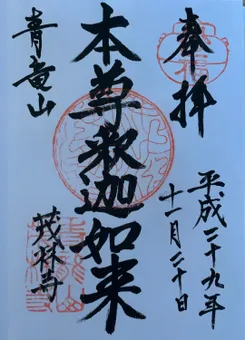 奉拝
平成二十九年
十一月二十日
本尊釈迦如来
青竜山
茂林寺